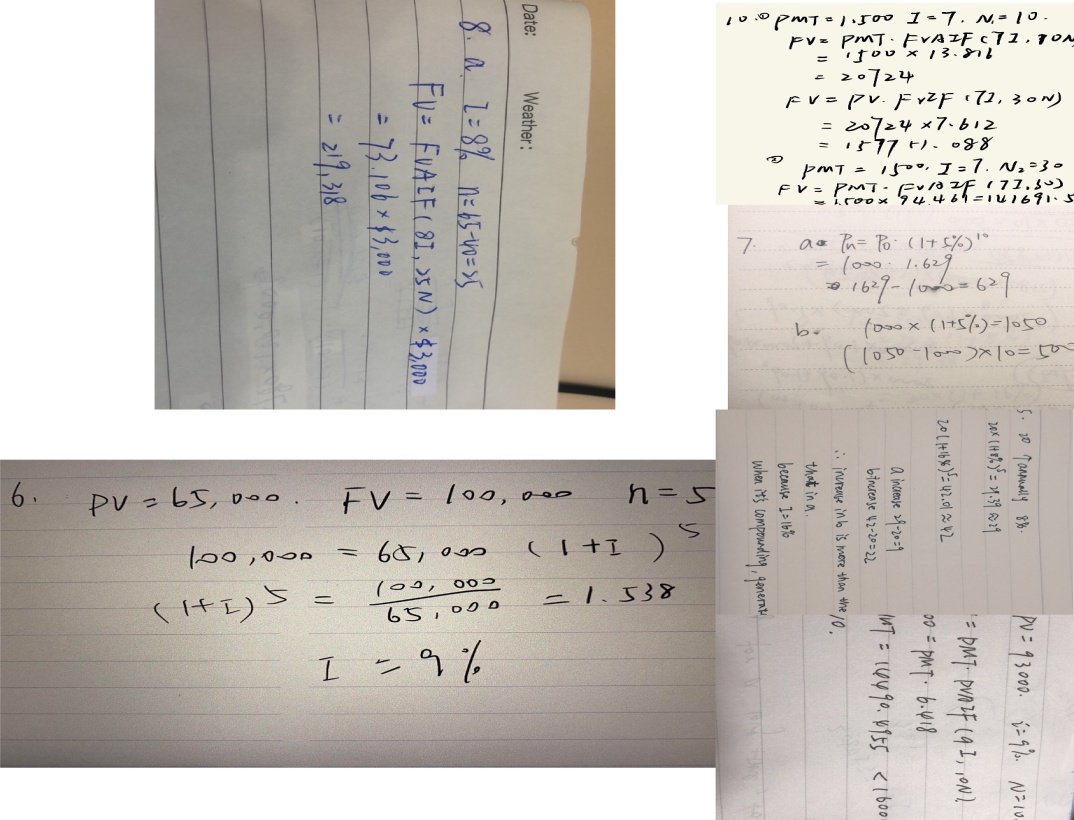 Date: Weather:
8. a. I=8% n=65-40=25
FV= FVAIF(8I,25N)×$3,000
= 73.106×$3,000
= 219,318
10.① PMT=1,500 I=7. N1=10.
FV= PMT. FVAIF(7I,10N
= 1500 × 13.816
= 20724
FV= PV. FVIF(7I,30N)
= 20724 ×7.612
② PMT = 1500. I=7. N2=30
FV= PMT. FVAIF(7I,30)
=1,500× 94.461=141691.5
7. a Pn= P0·(1+5%)^10
= 1000· 1.629
1629-1000=629
b. 1000×(1+5%)=1050
(1050-1000)×10=500
5. 20 ↑annually 8%.
20×(1+8%)^5=29.39≈29
20(1+16%)^5=42.01≈42
a increase 29-20=9
b increase 42-20=22
∴ increase in b is more than the
that in a.
because I=16%
when it's compounding,
6. PV=65,000. FV=100,000 n=5
100,000 = 65,000 (1+I)^5
(1+I)^5 = 100,000/65,000 =1.538
I = 9%
PV=93000. i=9%. N=10.
= PMT. PVAIF(9I,10N)
00=PMT. 6.418
MT = 14490.4955 <1600